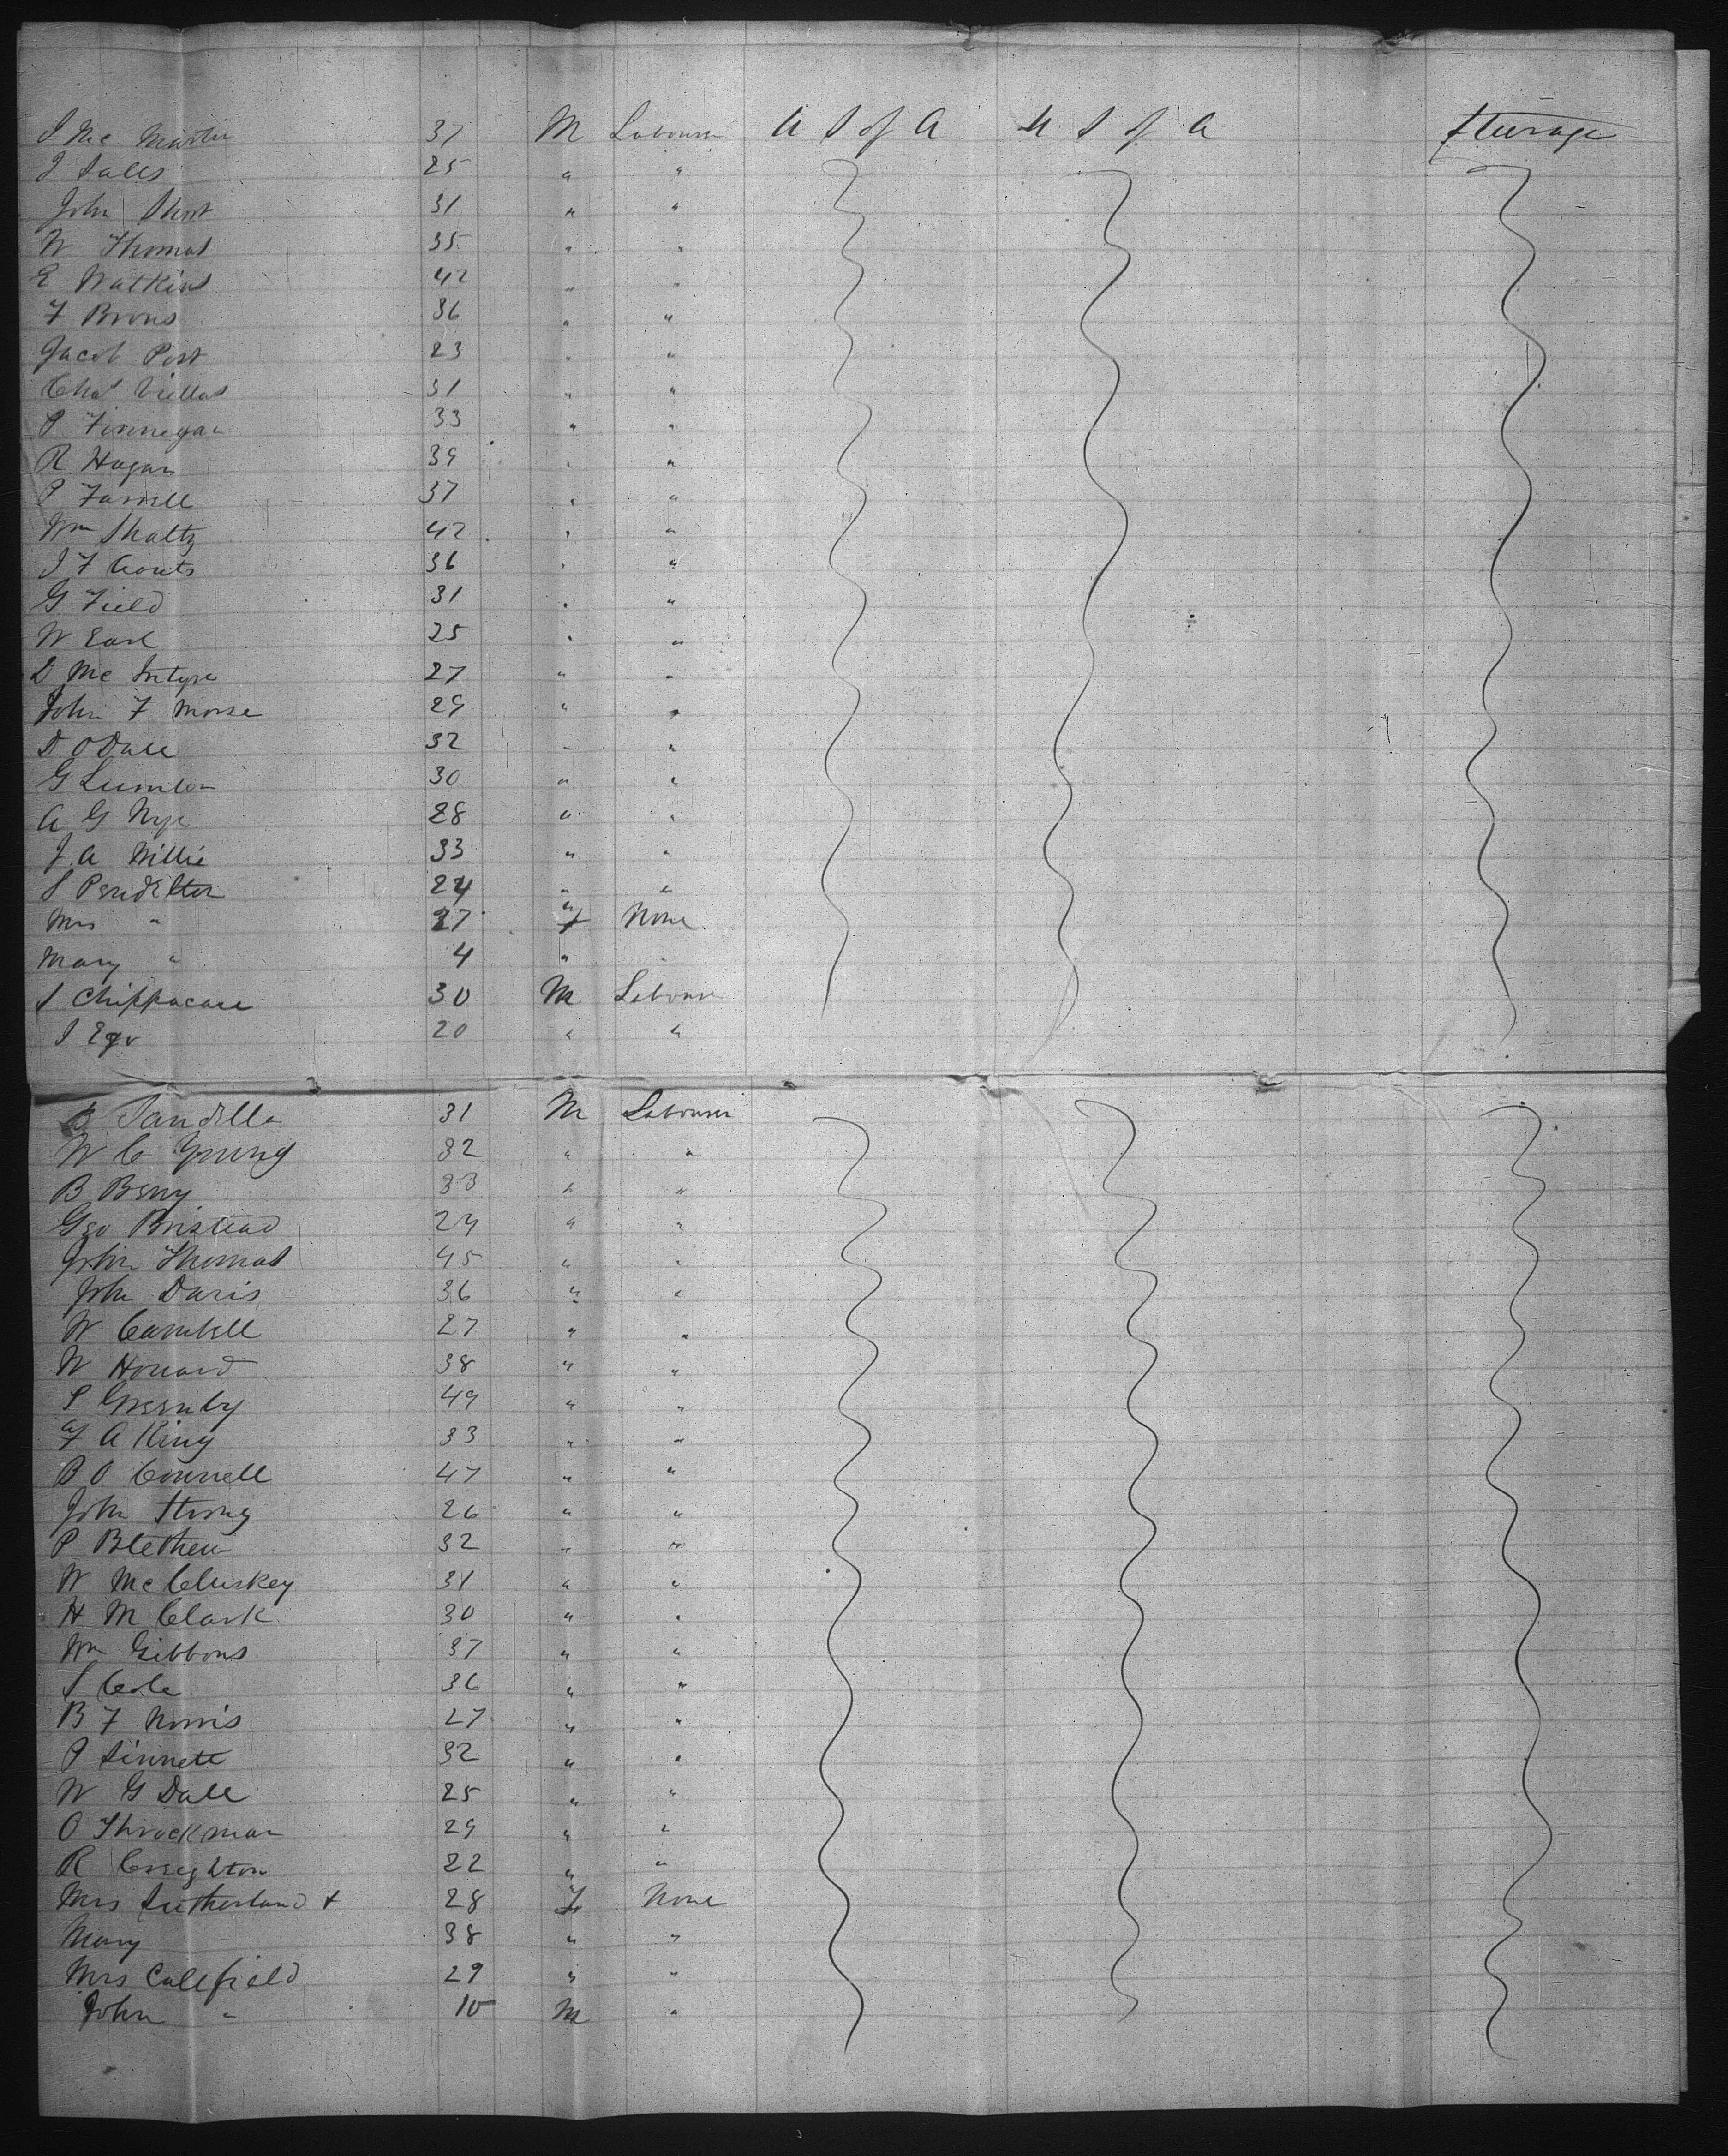 J Mc Martin 37 M Labourer U S of A U S of A Steerage
J Sales 25 " "
John Short 31 " "
W Thomas 35 " "
E Watkins 42 " "
F Brons 36 " "
Jacob Post 23 " "
Chas Villas 31 " "
P Finnegan 33 " "
R Hagan 39 " "
P Farrell 37 " "
Wm Shaltz 42 " "
J F Couts 36 " "
G Field 31 " "
W Earl 25 " "
D Mc Intyre 27 " "
John F Morse 29 " "
D O Dall 32 " "
G 30 " "
A G Nye 28 " "
J A Willie 33 " "
S Pendilton 24 " "
Mrs " 27 F None
Mary " 4 " "
S Chippacase 30 M Labourer
J 20 " "
B 31 M Labourer
W C Young 32 " "
B Beny 33 " "
Geo Bristead 24 " "
John Thomas 45 " "
John Davis 36 " "
W Cambell 27 " "
W Howard 38 " "
P Greenby 49 " "
A King 33 " "
B O Connell 47 " "
John Strong 26 " "
P Blethen 32 " "
W Mc Cluskey 31 " "
H M Clark 30 " "
Wm Gibbons 37 " "
S Cole 36 " "
B F Norris 27 " "
P Sinnett 32 " "
W G Dall 25 " "
O Throckman 29 " "
R Creighton 22 " "
Mrs Sutherland + 28 F None
Mary 38 " "
Mrs Calefield 29 " "
John " 10 M "